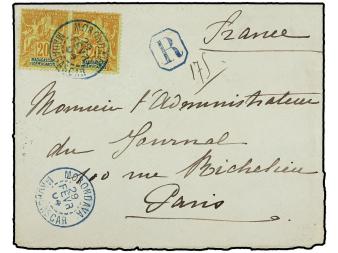 20
MORONDAVA
R
France
175
Monsieur l'Administrateur
du Journal
100 rue Richelieu
Paris
MORONDAVA
29
FEVR
04
MADAGASCAR